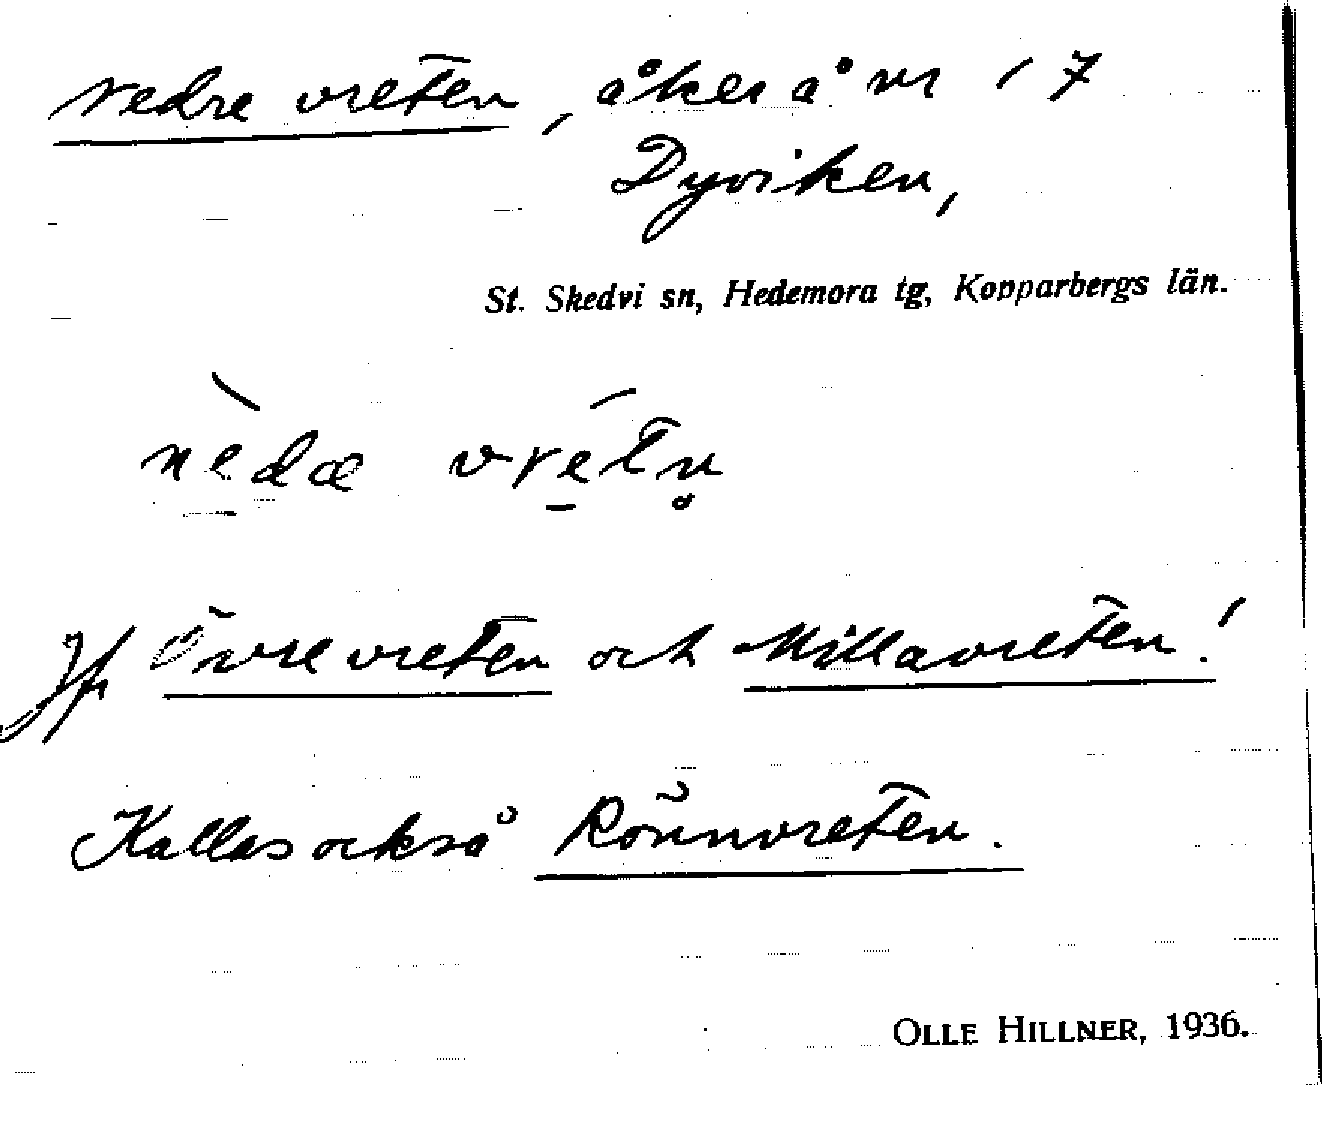 Nedre vreten, åker å nr 17
Dyviken,
St. Skedvi sn, Hedemora tg, Kopparbergs län.
nedæ vretn̥
Jfr Övre vreten och Millavreten!
Kallas också Rönnvreten.
OLLE HILLNER, 1936.